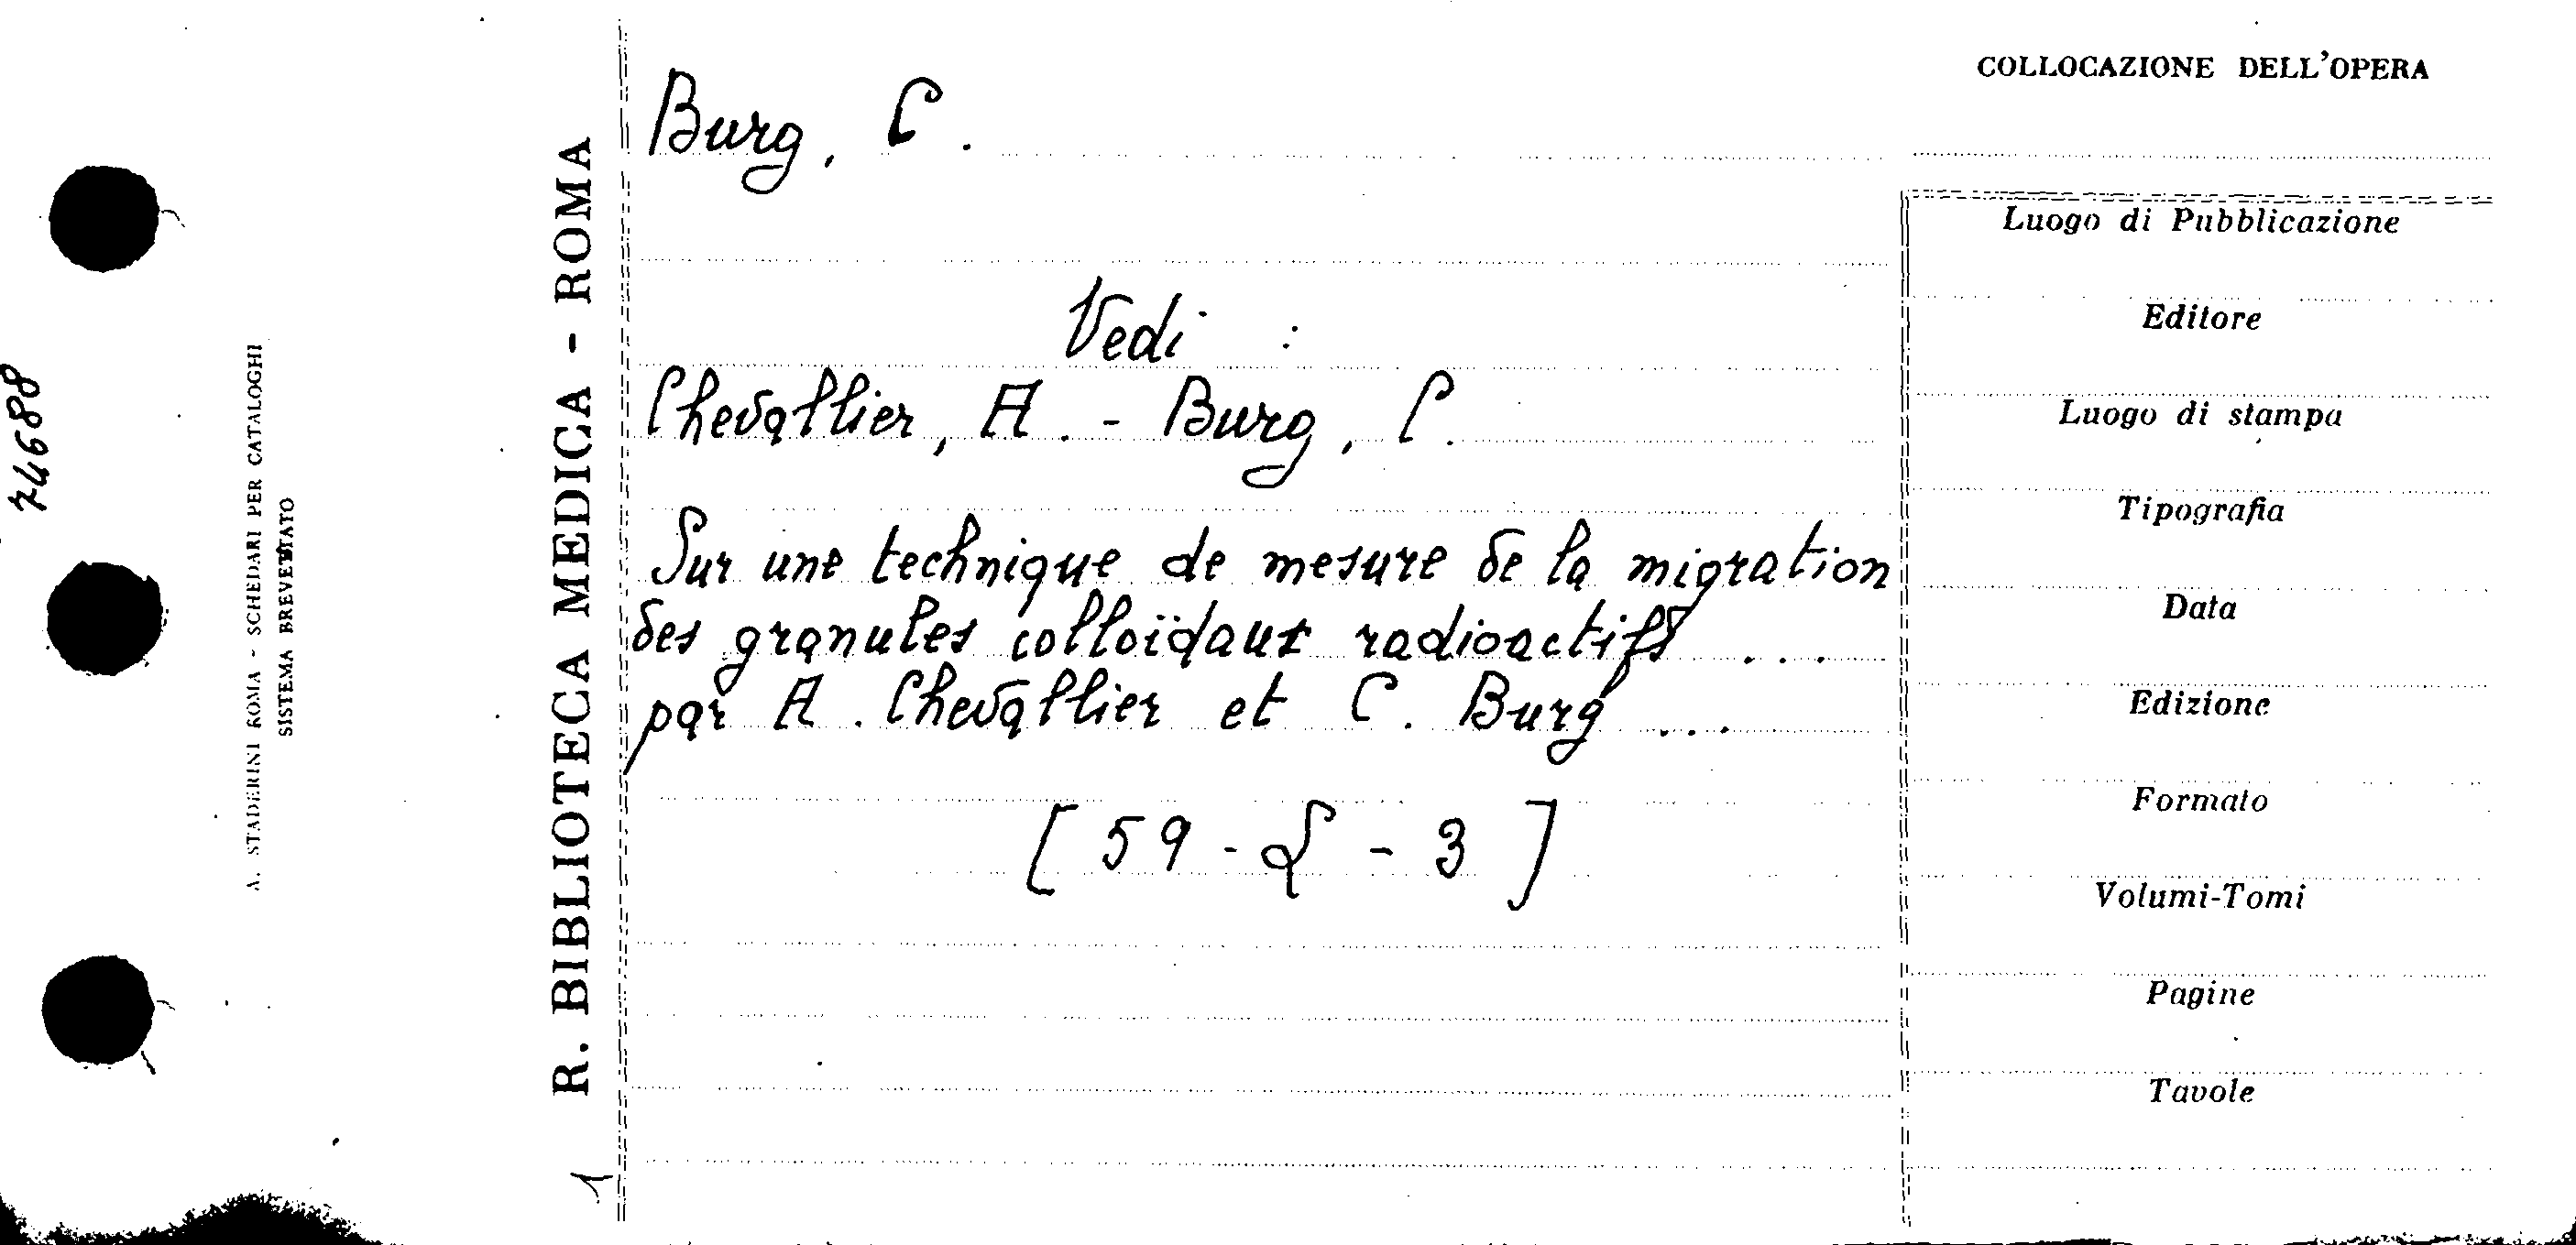 74688
A. STADERINI ROMA - SCHEDARI PER CATALOGHI
SISTEMA BREVETTATO
R. BIBLIOTECA MEDICA - ROMA
1
Burg, C.
Vedi :
Chevallier, A. - Burg, C.
Sur une technique de mesure de la migration
des granules colloïdaux radioactifs ...
par A. Chevallier et C. Burg ...
[ 59 - L - 3 ]
COLLOCAZIONE DELL'OPERA
Luogo di Pubblicazione
Editore
Luogo di stampa
Tipografia
Data
Edizione
Formato
Volumi-Tomi
Pagine
Tavole